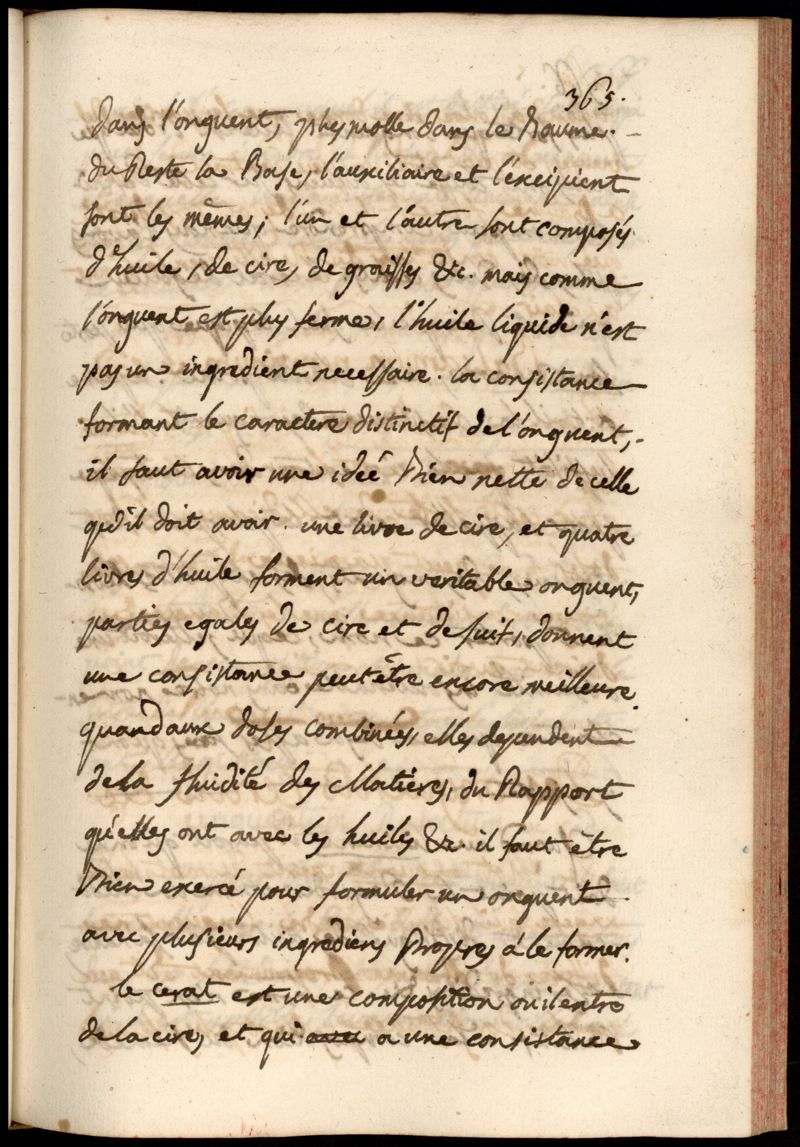 365.
dans l'onguent, plus molle dans le Baume. –
du Reste la Base, l'auxiliaire et l'excipient
sont les mêmes; l'un et l'autre sont composés
d'huile, de cire, de graisses &c. mais comme
l'onguent est plus ferme, l'huile liquide n'est
pas un ingredient necessaire. la consistance
formant le caractere distinctif de l'onguent, -
il faut avoir une ideé Bien nette de celle
qu'il doit avoir. une livre de cire, et quatre
livres d'huile forment un veritable onguent,
parties egales de cire et de suif, donnent
une consistance peut être encore meilleure.
quand aux doses combinées, elles dependent
de la fluidité des Matieres, du Rapport
qu'elles ont avec les huiles &c. il faut être
Bien exercé pour formuler un onguent
avec plusieurs ingrediens Propres á le former.
le cerat est une composition ou il entre
de la cire, et qui a une consistance